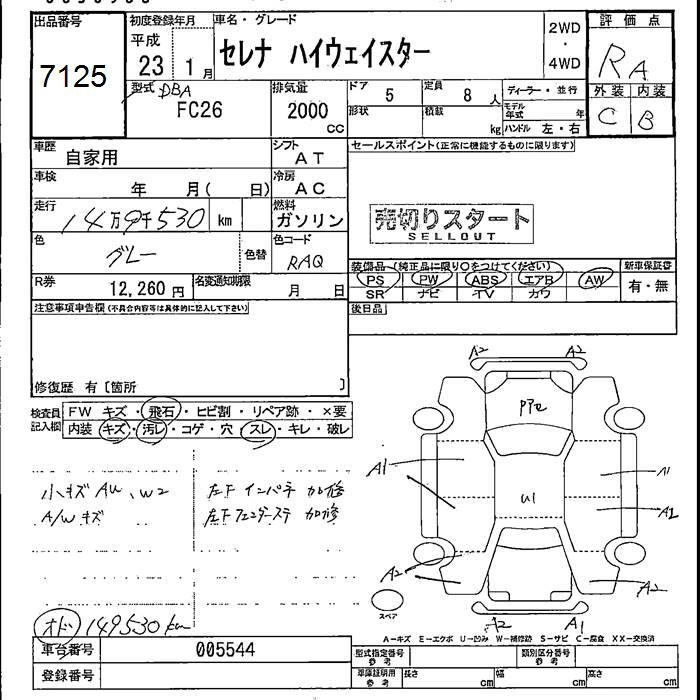 出品番号 初度登録年月 車名・グレード 評価点
7125 平成 23 1月 セレナ ハイウェイスター 2WD・4WD RA
型式 DBA FC26 排気量 2000 cc ドア 5 定員 8人 ディーラー・並行 外装 内装
形状 積載 kg モデル年式 年 ハンドル 左・右 C B
車歴 自家用 シフト AT セールスポイント(正常に機能するものに限ります)
車検 年 月( 日) 冷房 AC
走行 14万9千530 km 燃料 ガソリン 売切りスタート
SELLOUT
色 グレー 色替 色コード RAQ
R券 12,260円 名変通知期限 月 日 装備品(純正品に限り○をつけてください) 新車保証書
PS PW ABS エアB AW 有・無
SR ナビ TV カワ
注意事項申告欄(不具合内容等は具体的に記入して下さい) 後日品
修復歴 有〔箇所 〕
検査員記入欄 FW キズ・飛石・ヒビ割・リペア跡・×要
内装 キズ・汚レ・コゲ・穴・スレ・キレ・破レ
小キズ AU、W2 左F インパネ 加修
A/W キズ 左F フェンダーステ 加修
オド 149530km
A2 A2
PPe
A1 A1
U1 A2
A2 A2
A2 A1
スペア
A-キズ E-エクボ U-凹み W-補修跡 S-サビ C-腐食 XX-交換済
車台番号 005544 型式指定番号 参考 類別区分番号 参考
登録番号 車庫証明用 参考 長さ cm 幅 cm 高さ cm